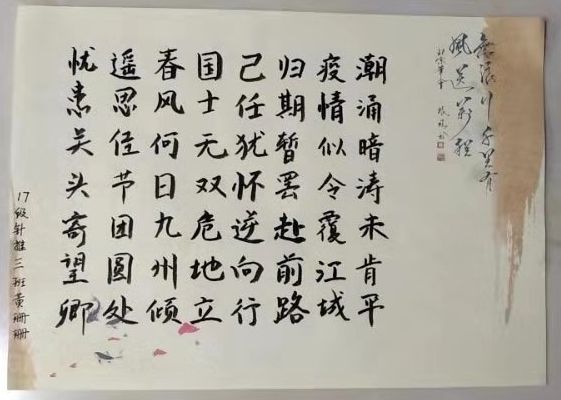 無浪行千里有
風送萬程
潮涌暗涛未肯平
疫情似令覆江城
归期暂罢赴前路
己任犹怀逆向行
国士无双危地立
春风何日九州倾
遥思佳节团圆处
忧患关头寄望卿
17级针推三班黄珊珊